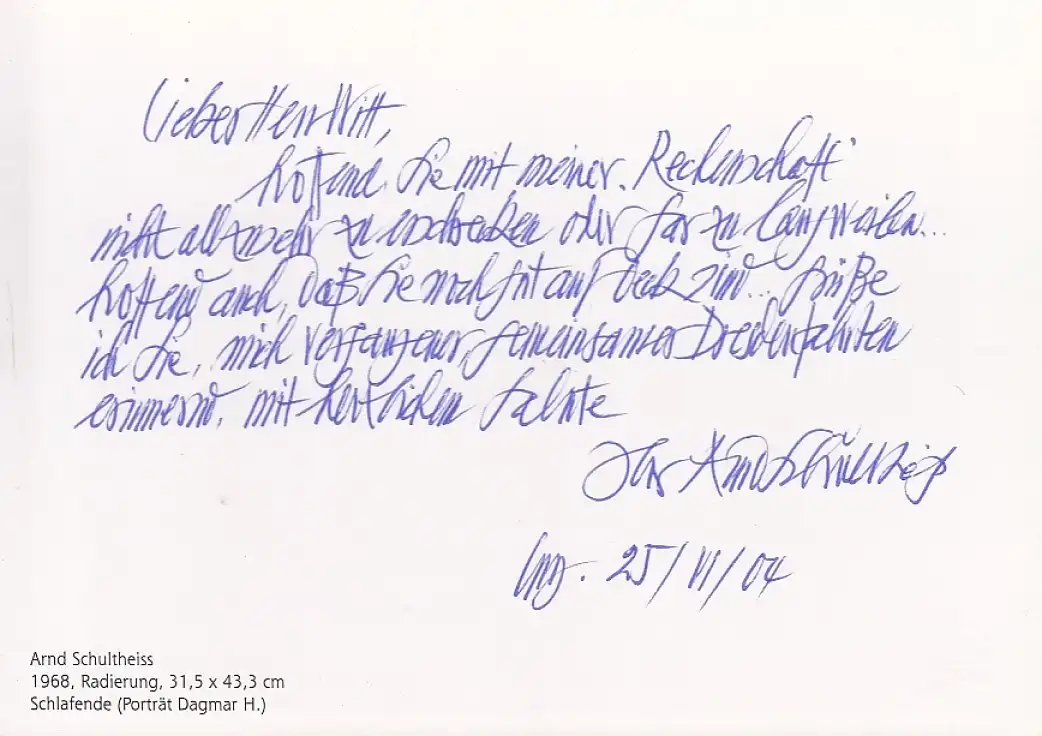 Lieber Herr Witt,
hoffend, Sie mit meiner "Rechenschaft"
nicht allzusehr zu erschrecken oder gar zu langweilen...
hoffend auch, daß Sie noch gut auf Deck sind... grüße
ich Sie, mich vergangener, gemeinsamer Dresdenfahrten
erinnernd, mit herzlichem Salute
Ihr Arnd Schultheiß
25/VI/04
Arnd Schultheiss
1968, Radierung, 31,5 x 43,3 cm
Schlafende (Porträt Dagmar H.)